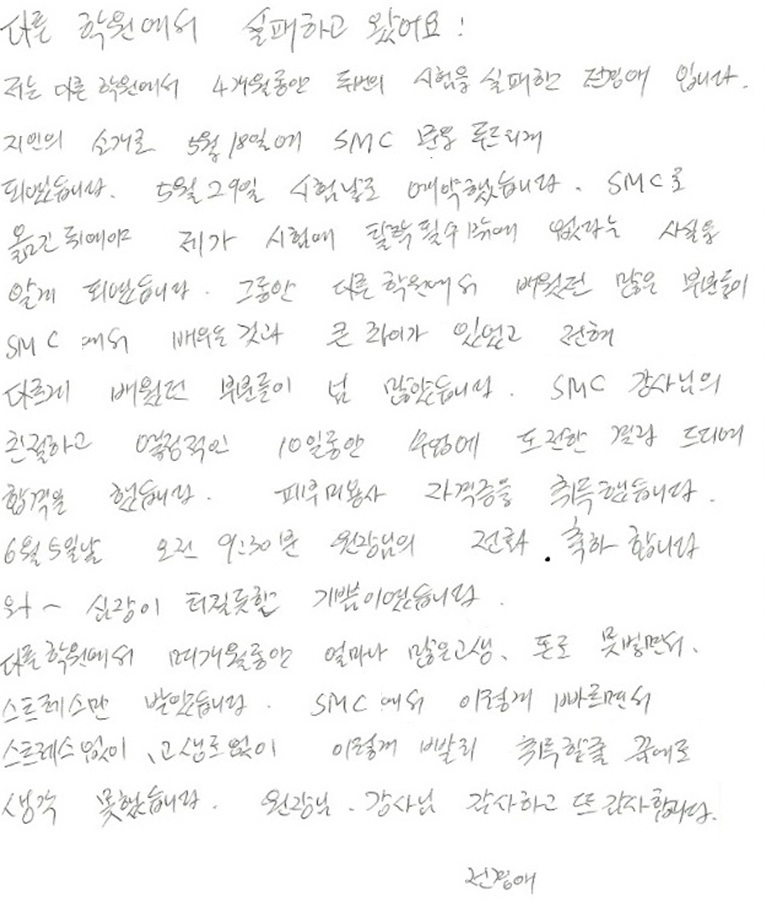 다른 학원에서 실패하고 왔어요!
저는 다른 학원에서 4개월동안 두번의 시험을 실패한 전정애 입니다.
지인의 소개로 5월 18일에 SMC 문을 두드리게
되었습니다. 5월 29일 시험날로 예약했습니다. SMC로
옮긴 뒤에야 제가 시험에 탈락 필수밖에 없다는 사실을
알게 되었습니다. 그동안 다른 학원에서 배웠던 많은 부분들이
SMC에서 배우는 것과 큰 차이가 있었고 전혀
다르게 배웠던 부분들이 넘 많았습니다. SMC 강사님의
친절하고 열정적인 10일동안 수업에 도전한 결과 드디어
합격을 했습니다. 피부미용사 자격증을 취득했습니다.
6월 5일날 오전 9:30분 원장님의 전화. 축하 합니다
와~ 심장이 터질듯한 기쁨이였습니다.
다른학원에서 몇개월동안 얼마나 많은고생, 돈도 못벌면서,
스트레스만 받았습니다. SMC에서 이렇게 빠르면서
스트레스없이, 고생도없이 이렇게 빨리 취득할줄 꿈에도
생각 못했습니다. 원장님. 강사님 감사하고 또 감사합니다.
전정애